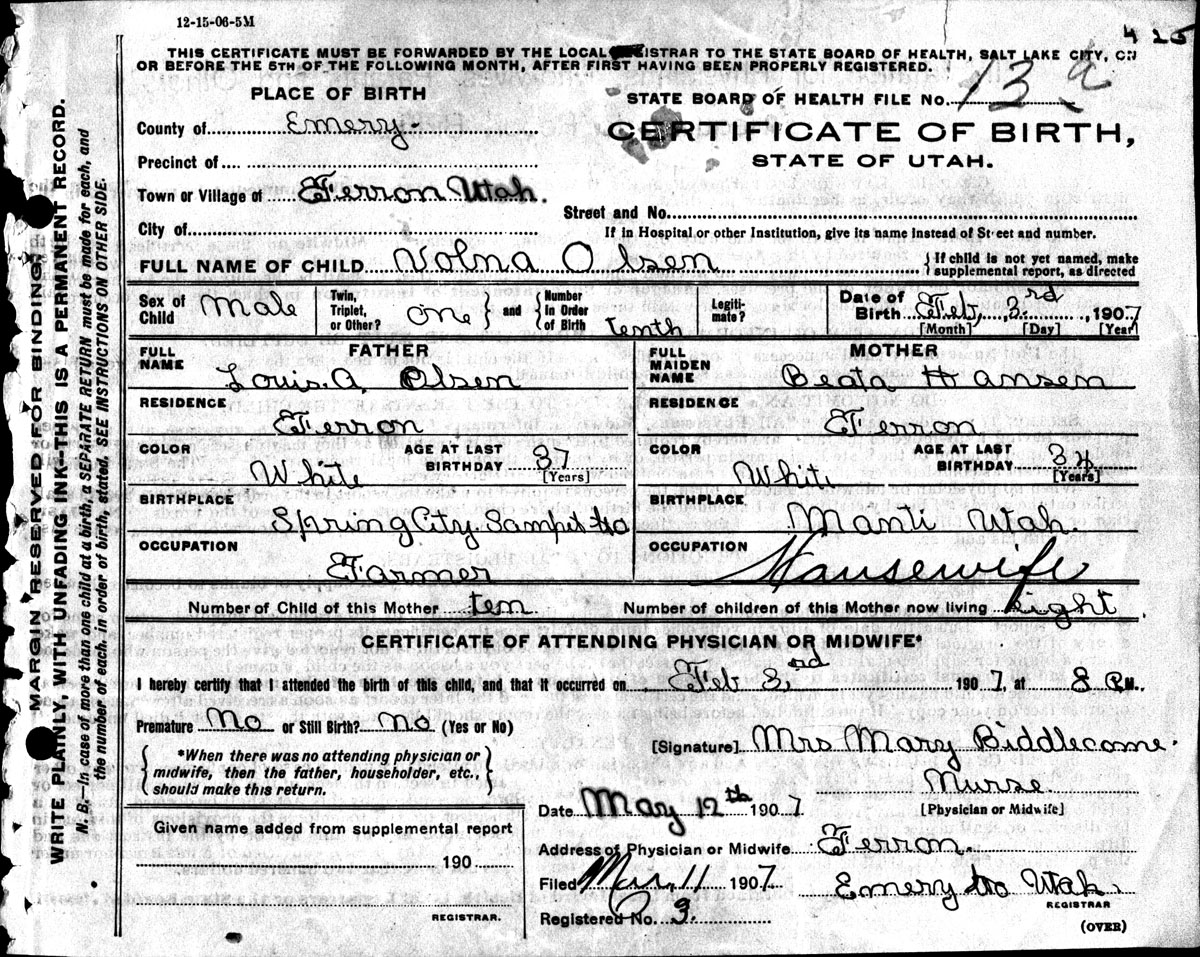 12-15-06-5M
425
THIS CERTIFICATE MUST BE FORWARDED BY THE LOCAL REGISTRAR TO THE STATE BOARD OF HEALTH, SALT LAKE CITY, ON
OR BEFORE THE 5TH OF THE FOLLOWING MONTH, AFTER FIRST HAVING BEEN PROPERLY REGISTERED.
PLACE OF BIRTH
STATE BOARD OF HEALTH FILE No. 13 a
County of Emery
CERTIFICATE OF BIRTH,
Precinct of
STATE OF UTAH.
Town or Village of Ferron Utah.
Street and No.
City of
If in Hospital or other Institution, give its name instead of Street and number.
FULL NAME OF CHILD Volna Olsen
If child is not yet named, make
supplemental report, as directed
Sex of Child Male
Twin, Triplet, or Other? one and Number In Order of Birth tenth
Legiti- mate?
Date of Birth Feb, 3rd, 1907
[Month] [Day] [Year]
FATHER
FULL NAME Louis. A. Olsen
MOTHER
FULL MAIDEN NAME Beata Hansen
RESIDENCE Ferron
RESIDENCE Ferron
COLOR White AGE AT LAST BIRTHDAY 37 [Years]
COLOR Whit AGE AT LAST BIRTHDAY 34 [Years]
BIRTHPLACE Spring City. Sampet Co
BIRTHPLACE Manti Utah.
OCCUPATION Farmer
OCCUPATION Housewife
Number of Child of this Mother ten Number of children of this Mother now living Eight
CERTIFICATE OF ATTENDING PHYSICIAN OR MIDWIFE*
I hereby certify that I attended the birth of this child, and that it occurred on Feb 3rd 1907, at 8 P.M.
Premature No or Still Birth? No (Yes or No)
[Signature] Mrs Mary Biddlecome.
*When there was no attending physician or
midwife, then the father, householder, etc.,
should make this return.
Nurse.
[Physician or Midwife]
Date May 12th 1907
Given name added from supplemental report
190
REGISTRAR.
Address of Physician or Midwife Ferron.
Filed Mar, 11 1907 Emery Co Utah.
REGISTRAR
Registered No. 9.
(OVER)
MARGIN RESERVED FOR BINDING.
WRITE PLAINLY, WITH UNFADING INK—THIS IS A PERMANENT RECORD.
N. B.—In case of more than one child at a birth, a SEPARATE RETURN must be made for each, and
the number of each, in order of birth, stated. SEE INSTRUCTIONS ON OTHER SIDE.